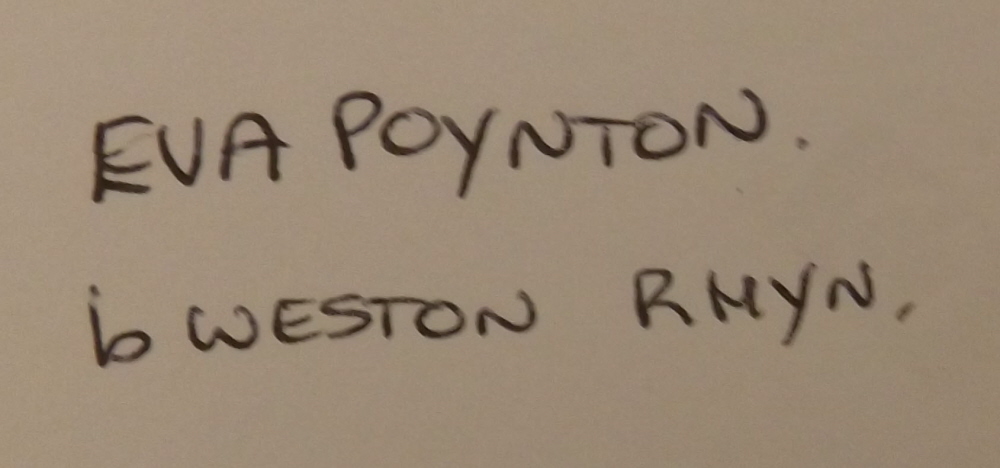 EVA POYNTON.
b WESTON RHYN.